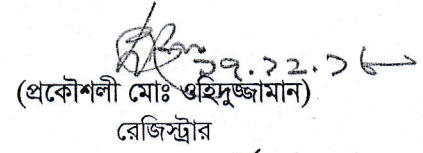 ২৭.১২.১৮
(প্রকৌশলী মোঃ ওহিদুজ্জামান)
রেজিস্ট্রার